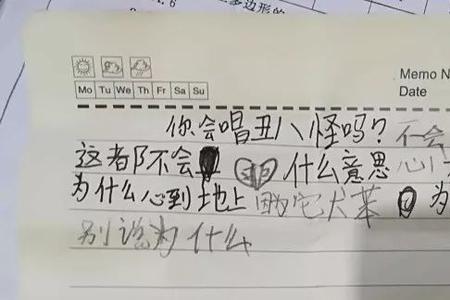 多边形的
Memo N
Mo Tu We Th Fr Sa Su
Date
你会唱丑八怪吗？不会
这都不会 什么意思 心
为什么心到地上 它犬 为
别说为什么